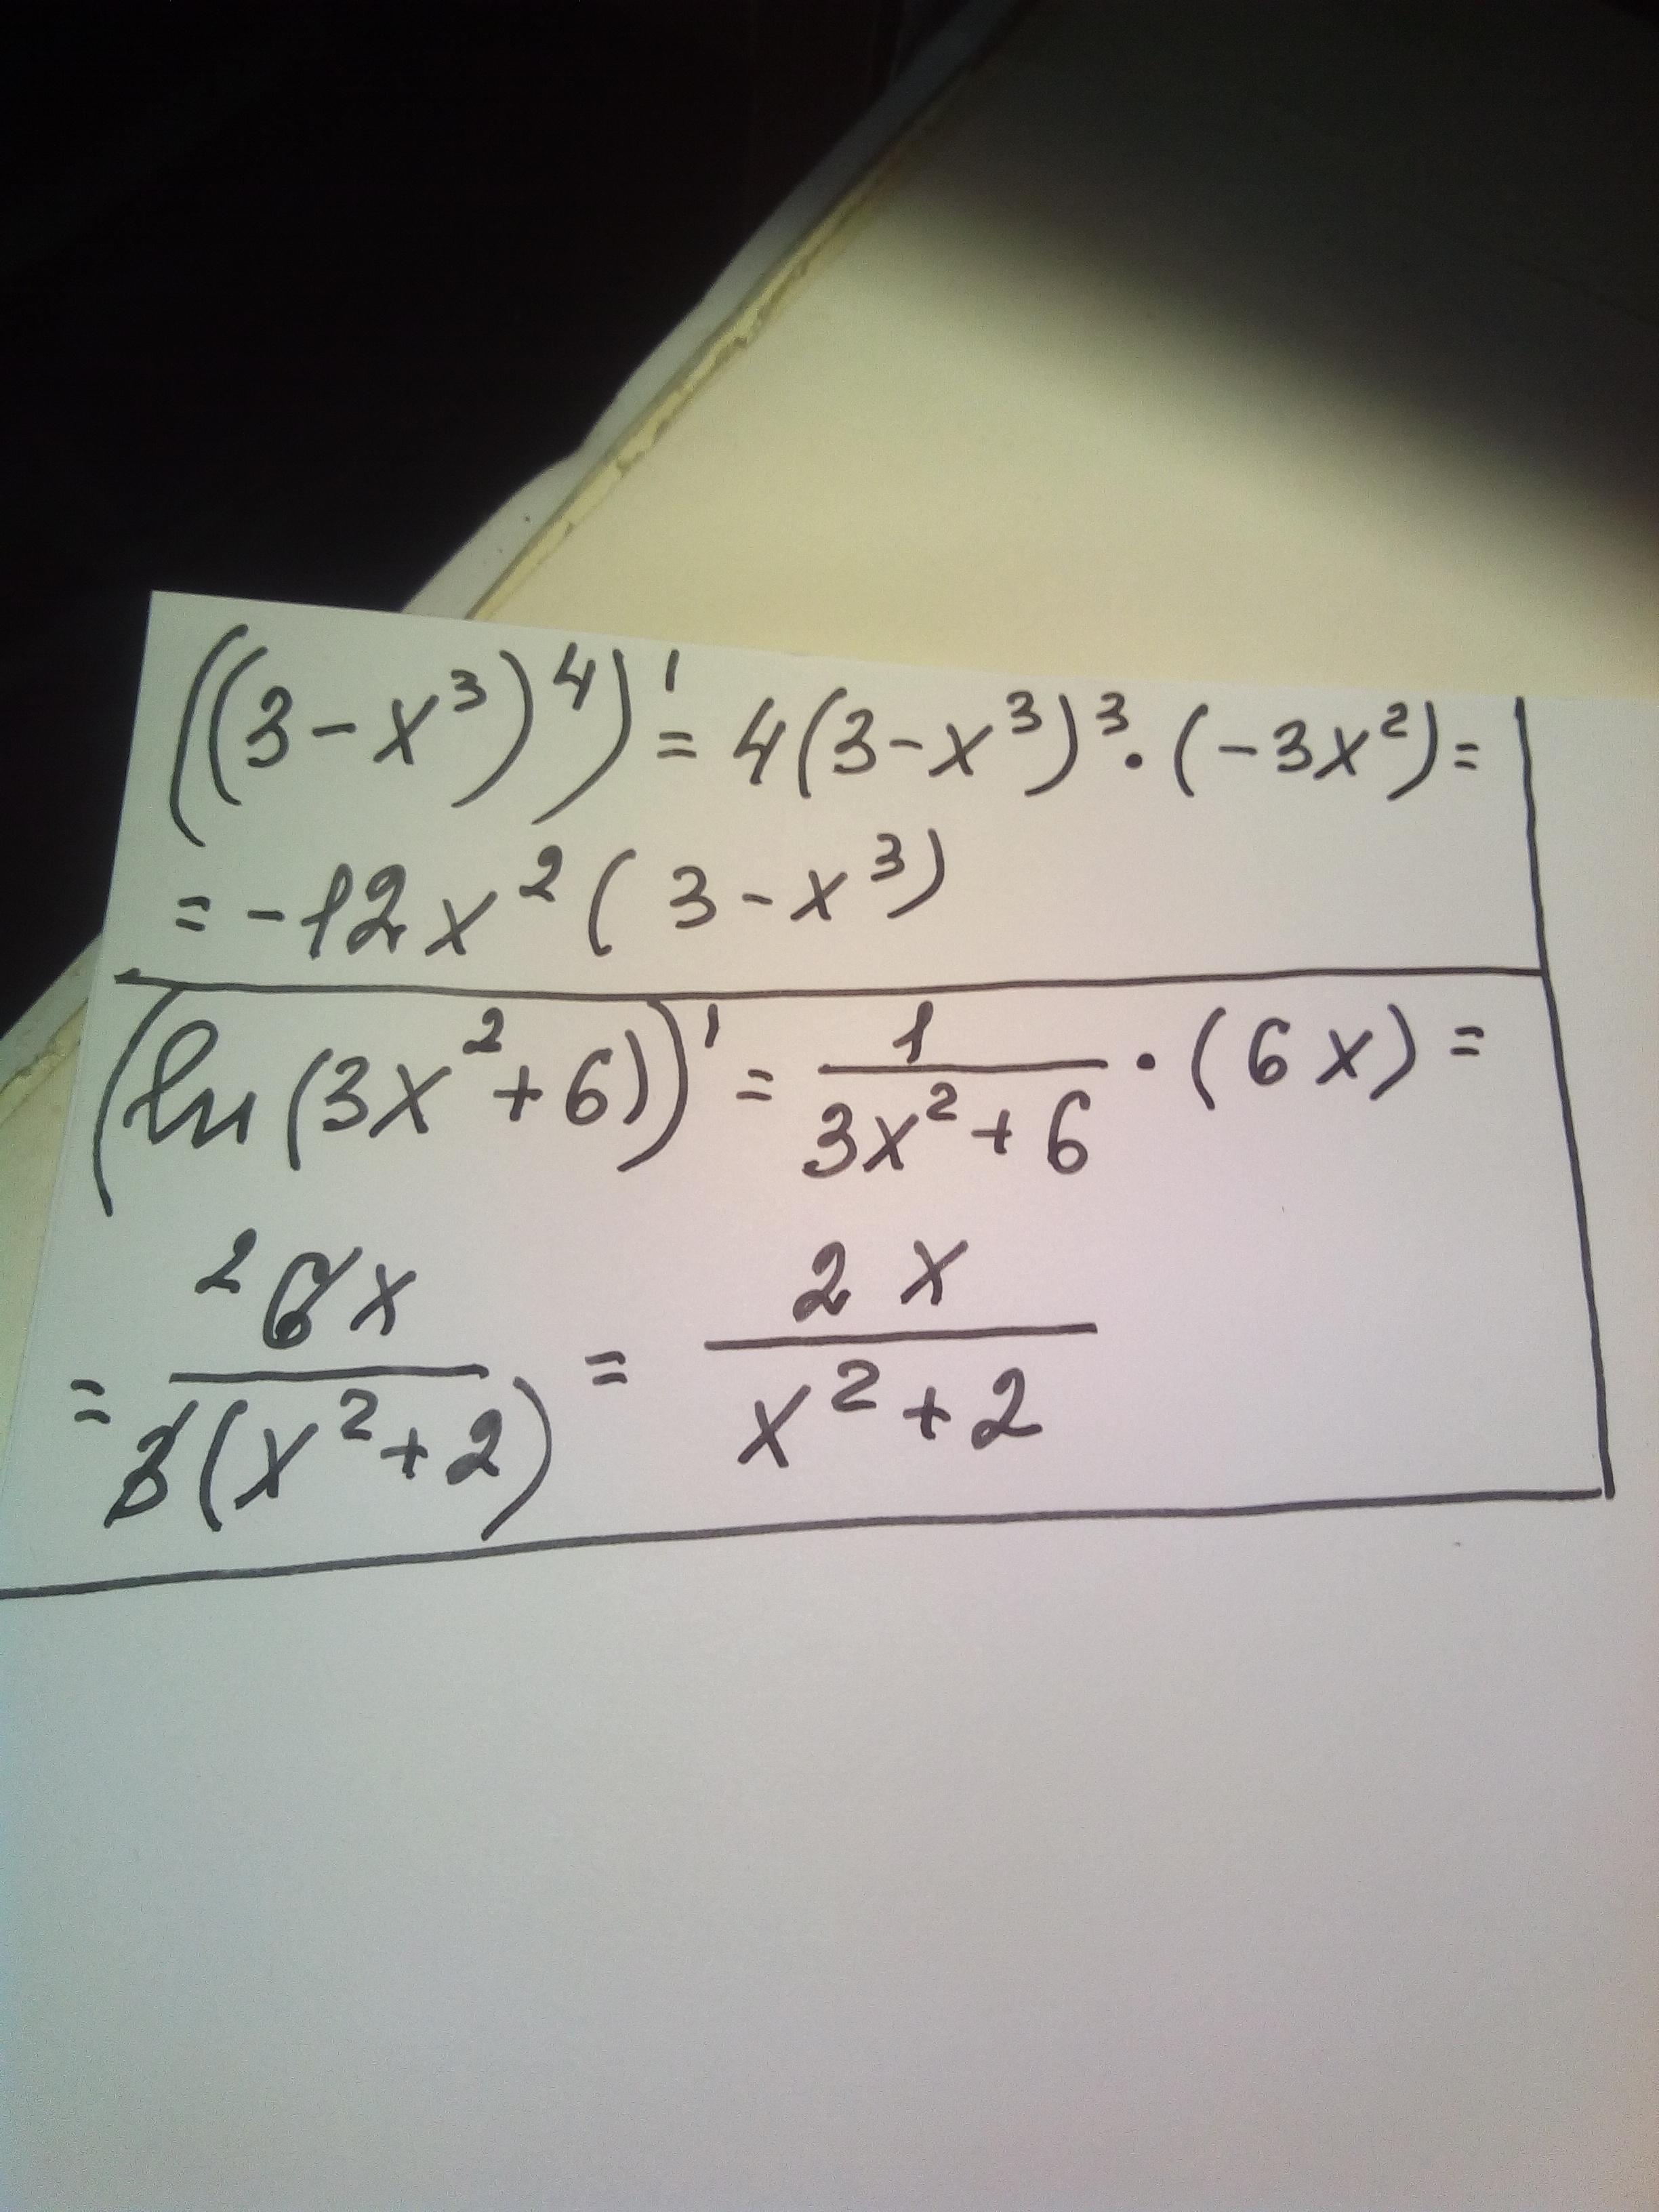 ((3-x³)⁴)' = 4(3-x³)³·(-3x²)=
= -12x²(3-x³)
(ln(3x²+6))' = 1/(3x²+6) · (6x) =
= ² 6x/(3(x²+2)) = 2x/(x²+2)